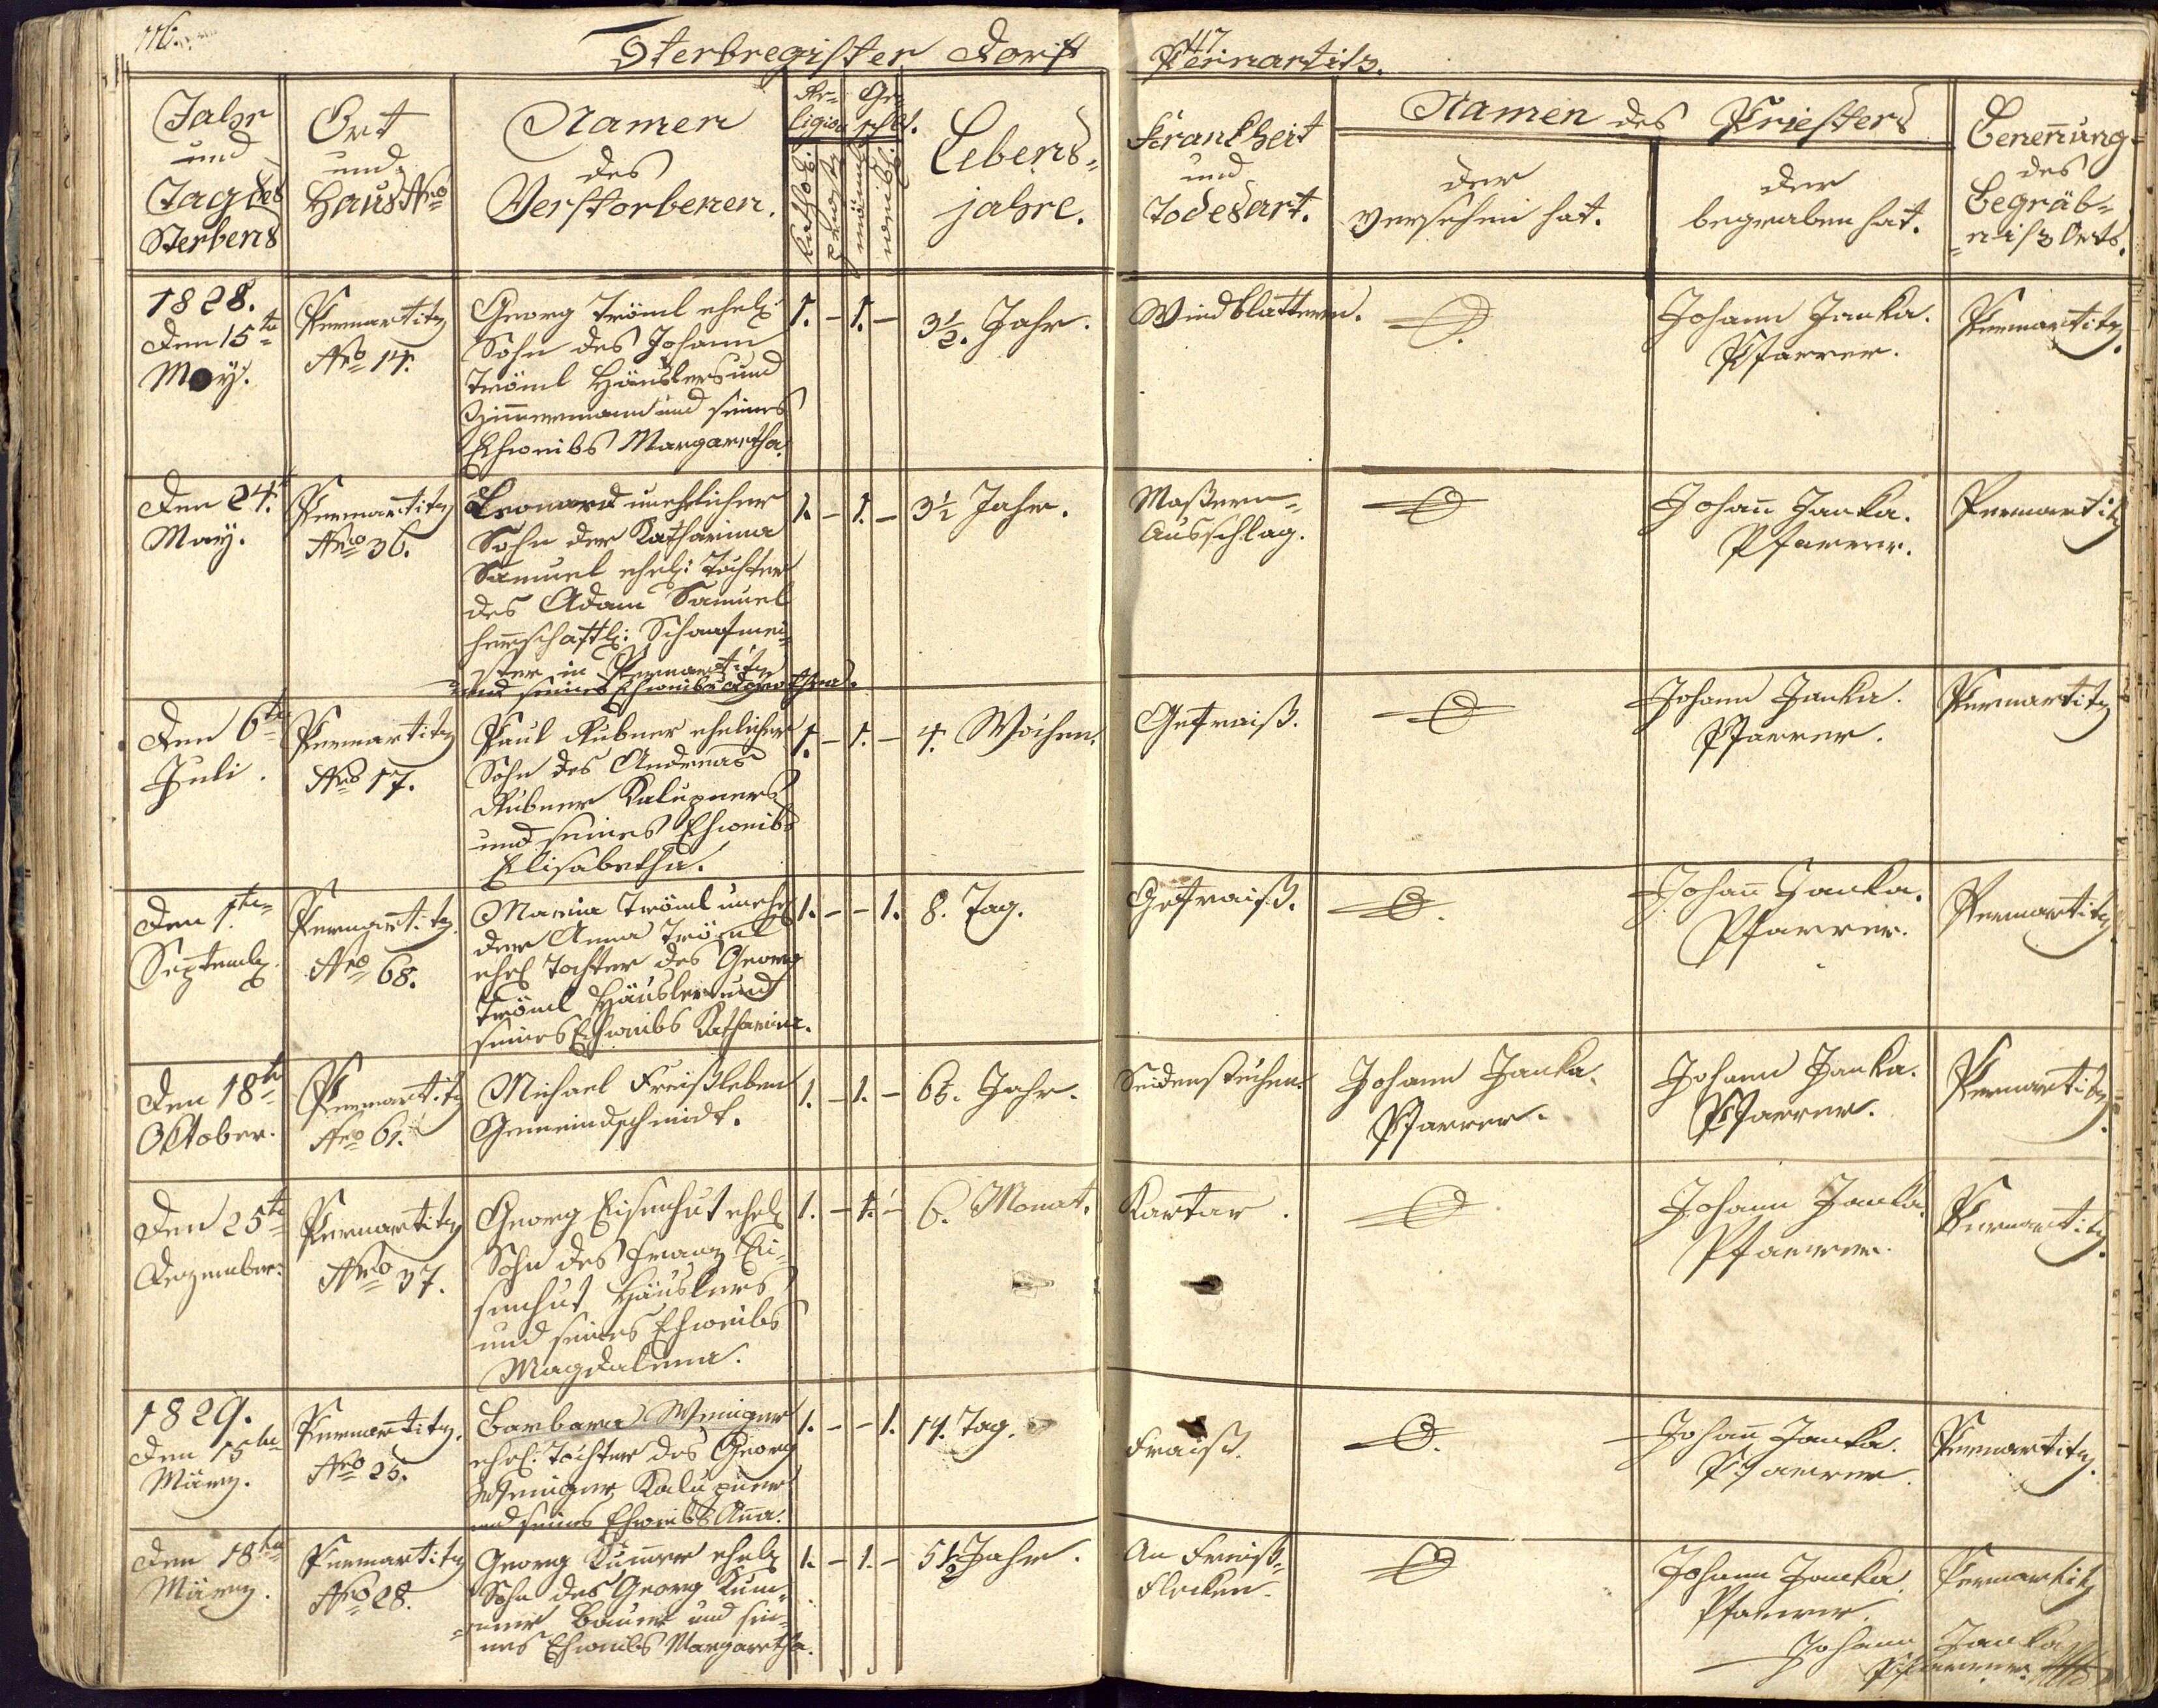 116.
117
Sterbregister Dorf
Pernartitz.
Jahr
und
Tag des
Sterbens
Ort
und
Haus Nro
Namen
des
Verstorbenen.
Re-
ligion
Ge-
schl.
kathol:
männl:
weibl:
Lebens-
jahre.
Krankheit
und
Todesart.
Namen des Priesters
der
versehen hat.
der
begraben hat.
Benennung
des
Begräb-
niß Orts.
1828.
Den 15te
May.
Pernartitz
Nro 14.
Georg Tröml ehel:
Sohn des Johann
Tröml Häuslers und
Zimmermann und seines
Eheweibs Margaretha.
1. - 1. -
3½. Jahr.
Windblattern.
Johann Janka.
Pfarrer.
Pernartitz.
Den 24.t
May.
Pernartitz
Nro 36.
Leonard unehlicher
Sohn der Katharina
Samuel ehel: Tochter
des Adam Samuel
herrschaftl: Schaafmei-
ster in Pernartitz
und seines Eheweibs Dorothea.
1. - 1. -
3½ Jahr.
Maßern-
Ausschlag.
Johann Janka.
Pfarrer.
Pernartitz
Den 6te
Juli.
Pernartitz
Nro 17.
Paul Rubner ehelicher
Sohn des Andreas
Rubner Kalupners
und seines Eheweibs
Elisabetha.
1. - 1. -
4. Wochen.
Gefraiß.
Johann Janka.
Pfarrer.
Pernartitz
Den 1te
Septemb.
Pernartitz.
Nro 68.
Maria Tröml unehl
der Anna Tröml
ehel Tochter des Georg
Tröml Häusler und
seines Eheweibs Katharina.
1. - - 1.
8. Tag.
Gefraiß.
Johann Janka.
Pfarrer.
Pernartitz
Den 18te
Oktober.
Pernartitz
Nro 61.
Michael Freißleben
Gemeindschmidt.
1. - 1. -
65. Jahr.
Seidenstechen.
Johann Janka.
Pfarrer.
Johann Janka.
Pfarrer.
Pernartitz.
Den 25te
Dezember.
Pernartitz
Nro 37.
Georg Eisenhut ehel
Sohn des Franz Ei-
senhut Häuslers
und seines Eheweibs
Magdalena.
1. - 1. -
6. Monat.
Kartar.
Johann Janka.
Pfarrer.
Pernartitz.
1829.
Den 15te
März.
Pernartitz.
Nro 25.
Barbara Weniger
ehel: Tochter des Georg
Weniger Kalupner
und seines Eheweibs Anna.
1. - - 1.
14. Tag.
Fraiß.
Johann Janka.
Pfarrer.
Pernartitz.
Den 18te
März.
Pernartitz
Nro 28.
Georg Kummer ehel
Sohn des Georg Kum-
mer Bauer und sei-
nes Eheweibs Margaretha.
1. - 1. -
5½ Jahr.
An Fraiß-
Flecken.
Johann Janka.
Pfarrer.
Pernartitz
Johann Janka
Pfarrer.